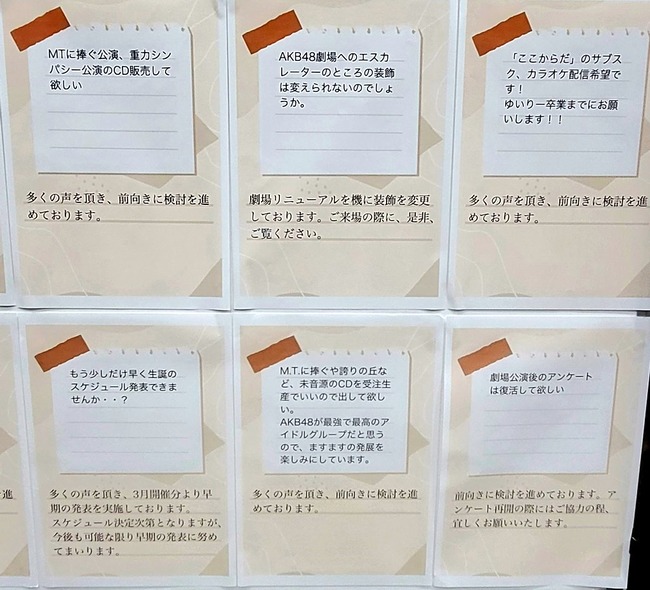 MTに捧ぐ公演、重力シン
パシー公演のCD販売して
欲しい
多くの声を頂き、前向きに検討を進
めております。
AKB48劇場へのエスカ
レーターのところの装飾
は変えられないのでしょ
うか。
劇場リニューアルを機に装飾を変更
しております。ご来場の際に、是非、
ご覧ください。
「ここからだ」のサブス
ク、カラオケ配信希望で
す！
ゆいりー卒業までにお願
いします！！
多くの声を頂き、前向きに検討を進
めております。
もう少しだけ早く生誕の
スケジュール発表できま
せんか・・？
多くの声を頂き、3月開催分より早
期の発表を実施しております。
スケジュール決定次第となりますが、
今後も可能な限り早期の発表に努め
てまいります。
M.T.に捧ぐや誇りの丘な
ど、未音源のCDを受注生
産でいいので出して欲し
い。
AKB48が最強で最高のア
イドルグループだと思う
ので、ますますの発展を
楽しみにしています。
多くの声を頂き、前向きに検討を進
めております。
劇場公演後のアンケート
は復活して欲しい
前向きに検討を進めております。ア
ンケート再開の際にはご協力の程、
宜しくお願いいたします。
を進